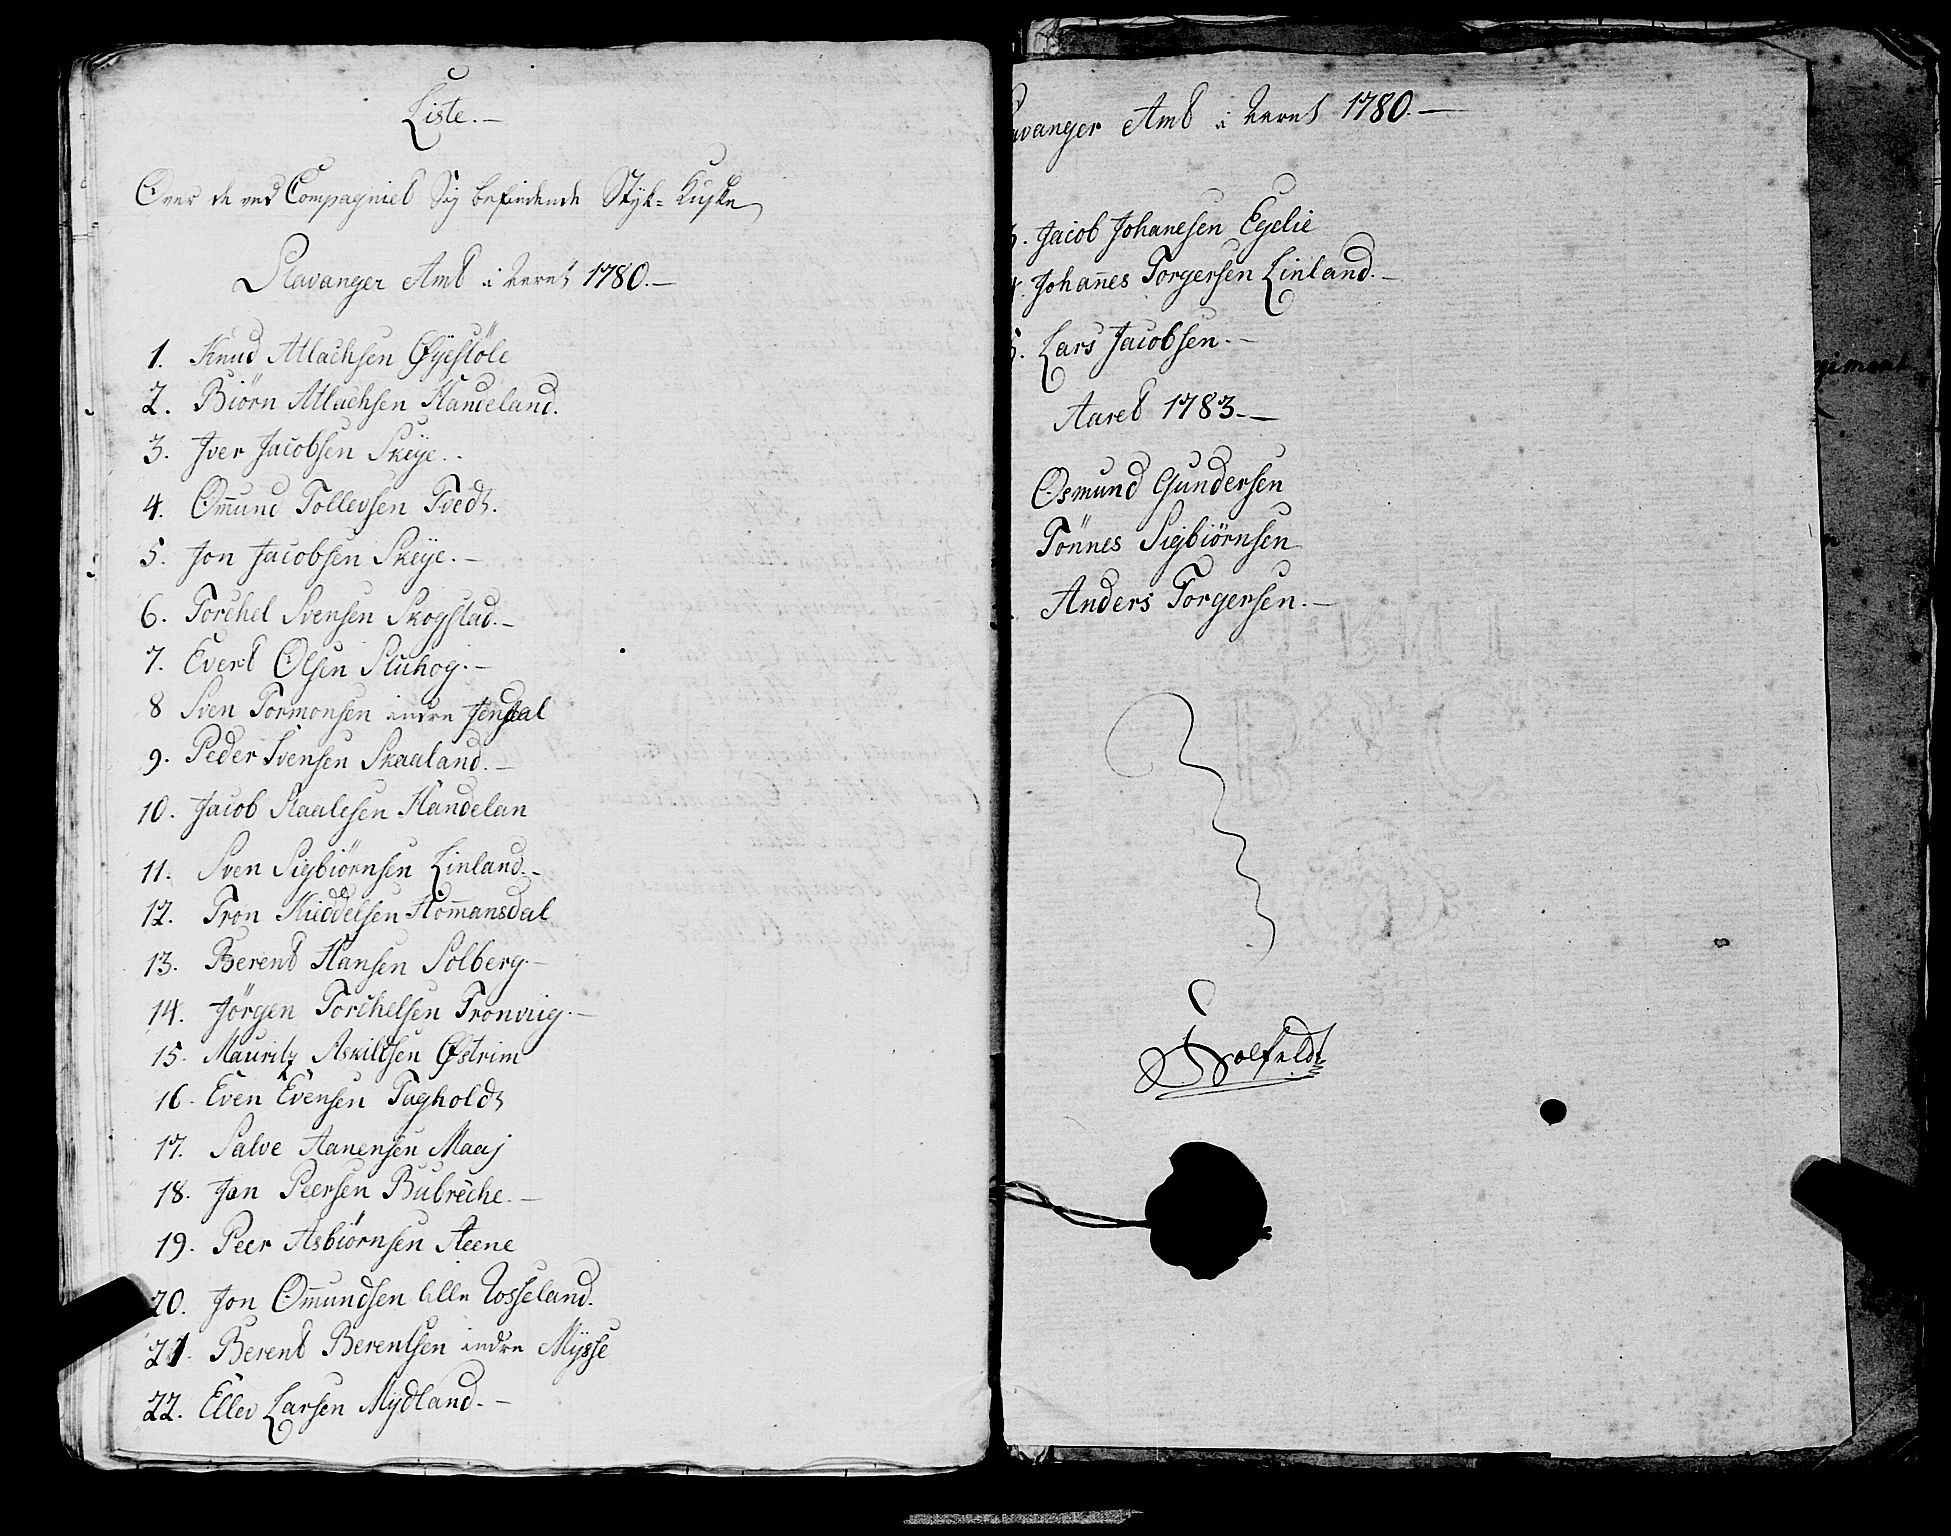 Liste. —
Over de ved Compagniet sig befindende Styk-Kuske
Stavanger Amt i Aaret 1780. —
1. Knud Atlachsen Øÿestöle
2. Biörn Atlachsen Handeland.
3. Iver Jacobsen Skeÿe. -
4. Om̄und Tollevsen Tvedt.
5. Jon Jacobsen Skeÿe. —
6. Torchel Svensen Skogstad. —
7. Evert Olsen Stuhog. —
8 Sven Tormonsen indre
9. Peder Svensen Skaaland. —
10. Jacob Staalesen Handelan
11. Sven Sigbiörnsen Linland. —
12. Tron Kieddelsen Hom̄ansdal
13. Berent Hansen Solberg. —
14. Jörgen Torchelsen Tronviig. —
15. Mauritz Askildsen Østrim
16. Even Evensen Tagholdt
17. Salve Aanensen
18. Jan Peersen Bubreche. —
19. Peer Asbiörnsen Steene
20. Jon Om̄undsen lille Rosseland.
21. Berent Berentsen indre Mÿsse
22. Ellev Larsen Mÿdland. —
avanger Amt i Aaret 1780. —
3. Jacob Johanesen Egelie
4. Johan̄es Torgersen Linland. —
5. Lars Jacobsen. —
Aaret 1783. —
Osmund Gundersen
Tönnes Sigbiörnsen
Anders Torgersen. —
giment